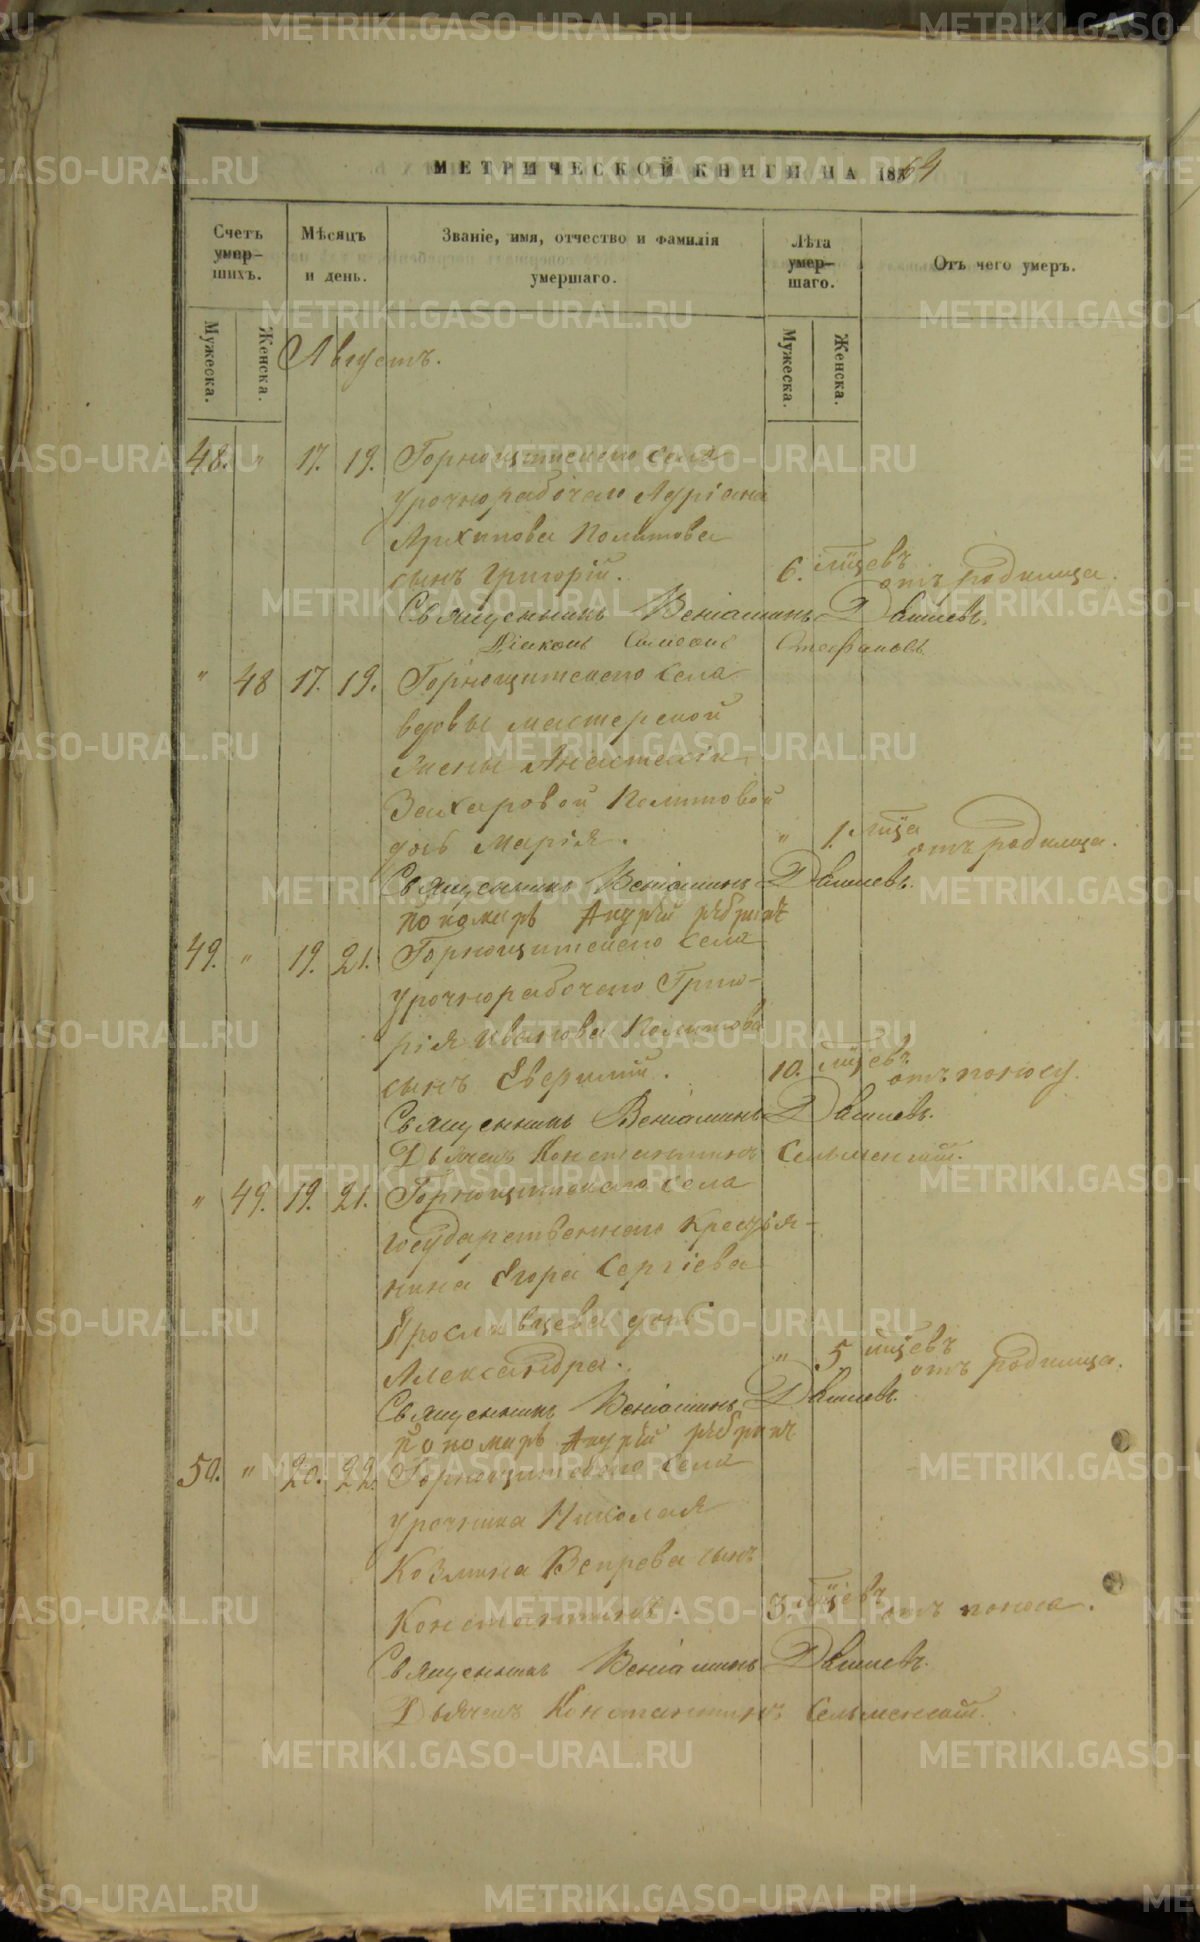 МЕТРИЧЕСКОЙ КНИГИ НА 1864
Счетъ умер-шихъ.
Мѣсяцъ и день.
Званіе, имя, отчество и фамилія умершаго.
Лѣта умер-шаго.
Отъ чего умеръ.
Мужеска. Женска. Мужеска. Женска.
Августъ.
48. " 17. 19. Горнощитскаго села
урочнорабочаго Адріана
Архипова Политова
сынъ Григорій. 6. мцевъ отъ родимца.
Священникъ Веніаминъ
Діаконъ Симеонъ Стефановъ
" 48 17. 19. Горнощитскаго села
вдовы мастерской
жены Анастасіи
Захаровой Политовой
дочь Марія. " 1. мца отъ родимца.
Священникъ Веніаминъ
пономарь
49. " 19. 21. Горнощитскаго села
урочнорабочаго Григо-
рія Иванова Политова
сынъ 10. мцевъ отъ поносу.
Священникъ Веніаминъ
Дьячекъ Константинъ
" 49. 19. 21. Горнощитскаго села
государственнаго крестья-
нина Егора Сергіева
Ярославцева дочь
Александра. " 5 мцевъ отъ родимца.
Священникъ Веніаминъ
пономарь
50. " 20. 22. Горнощитскаго села
урочника Николая
Козмина Вепрева сынъ
Константинъ. 3. мцевъ отъ поноса.
Священникъ Веніаминъ
Дьячекъ Константинъ
METRIKI.GASO-URAL.RU